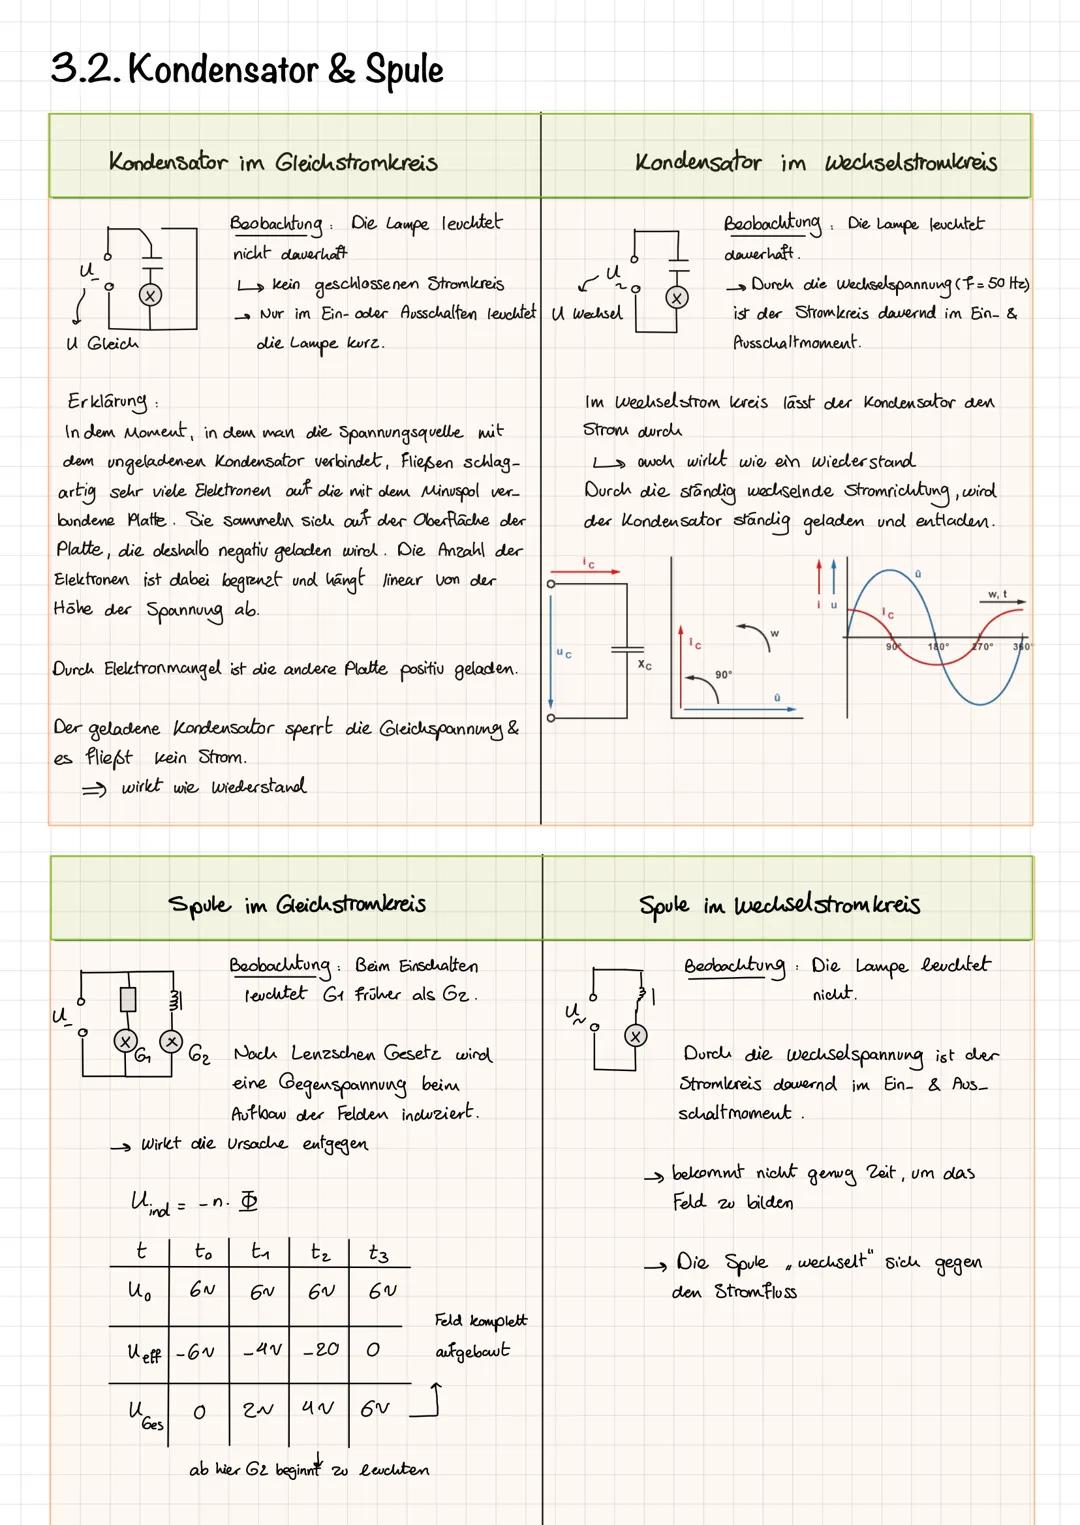 3.2. Kondensator & Spule
Kondensator im Gleichstromkreis
U_
U Gleich
Beobachtung: Die Lampe leuchtet
nicht dauerhaft
↳ kein geschlossenen Stromkreis
→ Nur im Ein- oder Ausschalten leuchtet
die Lampe kurz.
Erklärung:
In dem Moment, in dem man die Spannungsquelle mit
dem ungeladenen Kondensator verbindet, Fließen schlag-
artig sehr viele Elektronen auf die mit dem Minuspol ver-
bundene Platte. Sie sammeln sich auf der Oberfläche der
Platte, die deshalb negativ geladen wird. Die Anzahl der
Elektronen ist dabei begrenzt und hängt linear von der
Höhe der Spannung ab.
Durch Elektronmangel ist die andere Platte positiv geladen.
Der geladene Kondensator sperrt die Gleichspannung &
es fließt kein Strom.
⇒ wirkt wie Wiederstand
Kondensator im Wechselstromkreis
U~
U Wechsel
Beobachtung: Die Lampe leuchtet
dauerhaft.
→ Durch die Wechselspannung (F = 50 Hz)
ist der Stromkreis dauernd im Ein- &
Ausschaltmoment.
Im Wechselstrom kreis lässt der Kondensator den
Strom durch
↳ auch wirkt wie ein Wiederstand
Durch die ständig wechselnde Stromrichtung, wird
der Kondensator ständig geladen und entladen.
ic
uc
Xc
ic
w
90°
û
i u
û
ic
w, t
90° 180° 270° 360°
Spule im Gleichstromkreis
U_
G1
G2
Beobachtung: Beim Einschalten
leuchtet G1 früher als G2.
Nach Lenzschen Gesetz wird
eine Gegenspannung beim
Aufbau der Felden induziert.
→ Wirkt die Ursache entgegen
Uind = -n · Φ
t t0 t1 t2 t3
U0 6V 6V 6V 6V
Ueff -6V -4V -20 0
UGes 0 2V 4V 6V
Feld komplett
aufgebaut
ab hier G2 beginnt zu leuchten
Spule im Wechselstromkreis
U~
Beobachtung: Die Lampe leuchtet
nicht.
Durch die Wechselspannung ist der
Stromkreis dauernd im Ein- & Aus-
schaltmoment.
→ bekommt nicht genug Zeit, um das
Feld zu bilden
→ Die Spule „wechselt" sich gegen
den Stromfluss